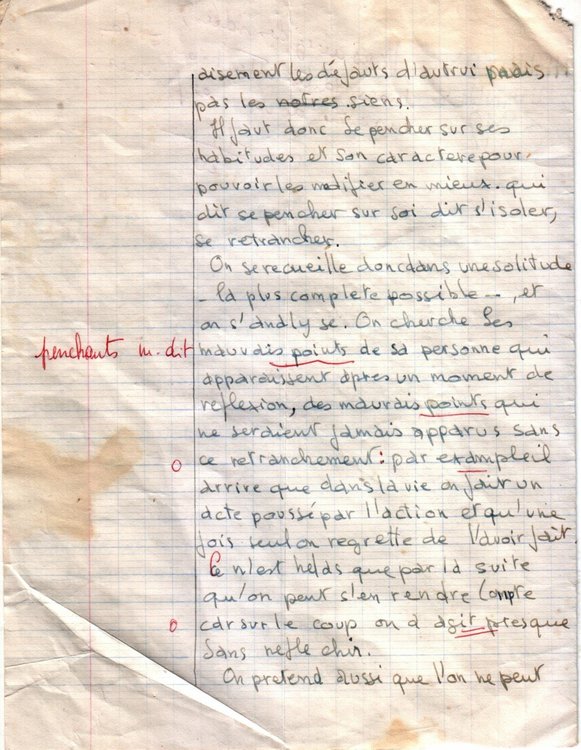 aisement les défauts d'autrui mais
pas les notres siens.
Il faut donc se pencher sur ses
habitudes et son caractere pour
pouvoir les modifier en mieux. qui
dit se pencher sur soi dit s'isoler,
se retrancher.
On se recueille donc dans une solitude
- la plus complete possible -, et
on s'analyse. On cherche les
penchants m-dit mauvais points de sa personne qui
apparaissent apres un moment de
reflexion, des mauvais points qui
ne seraient jamais apparus sans
ce retranchement: par example il
arrive que dans la vie on fait un
acte poussé par l'action et qu'une
fois seul on regrette de l'avoir fait.
Ce n'est helas que par la suite
qu'on peut s'en rendre compte
car sur le coup on a agit presque
sans reflechir.
On pretend aussi que l'on ne peut